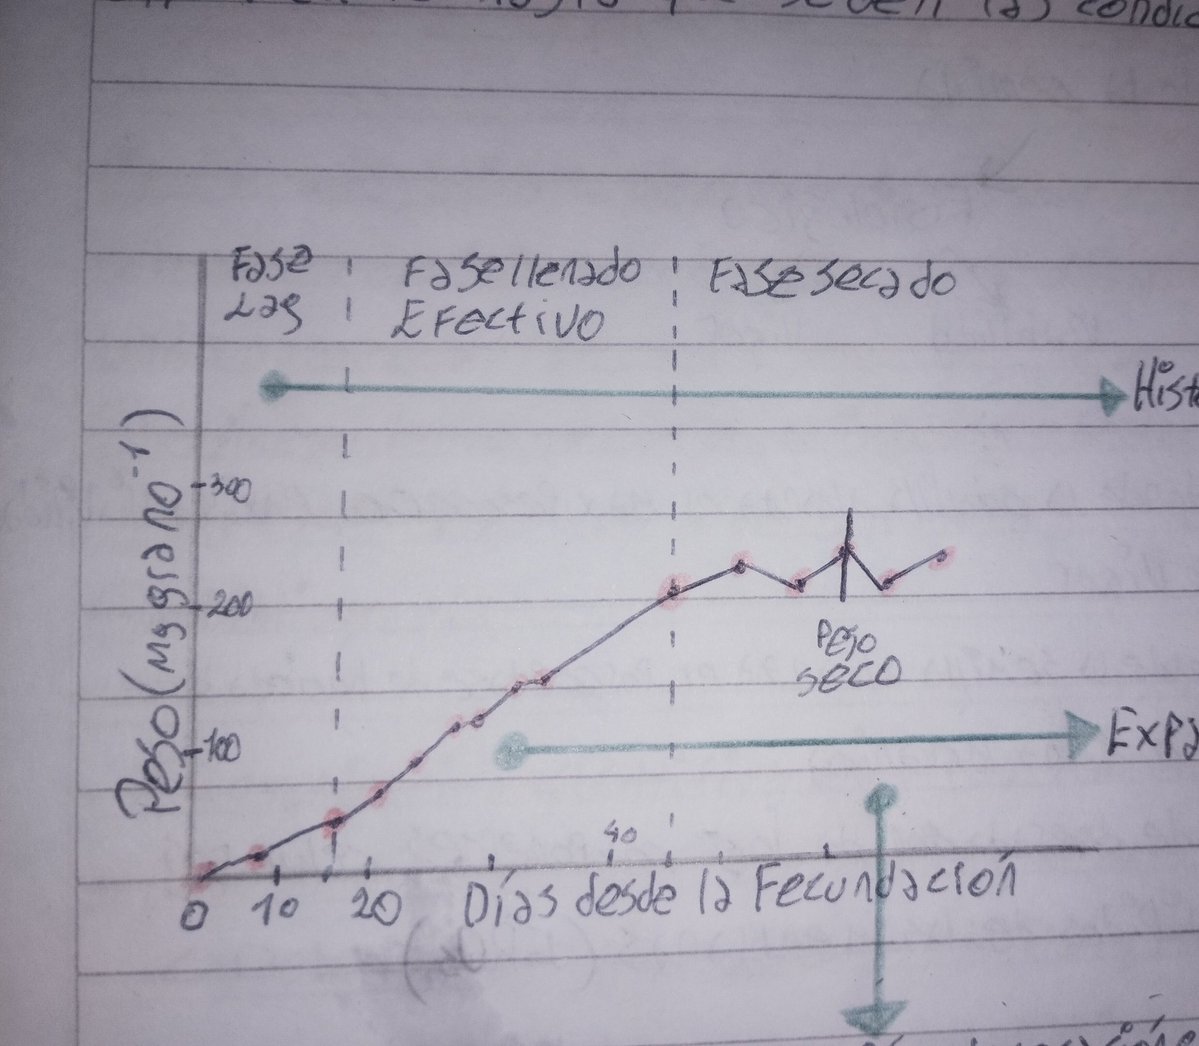 Fase
Lag
Fase llenado
Efectivo
Fase secado
Peso (Mg grano⁻¹)
300
200
100
Peso
seco
40
0
10
20
Días desde la Fecundación